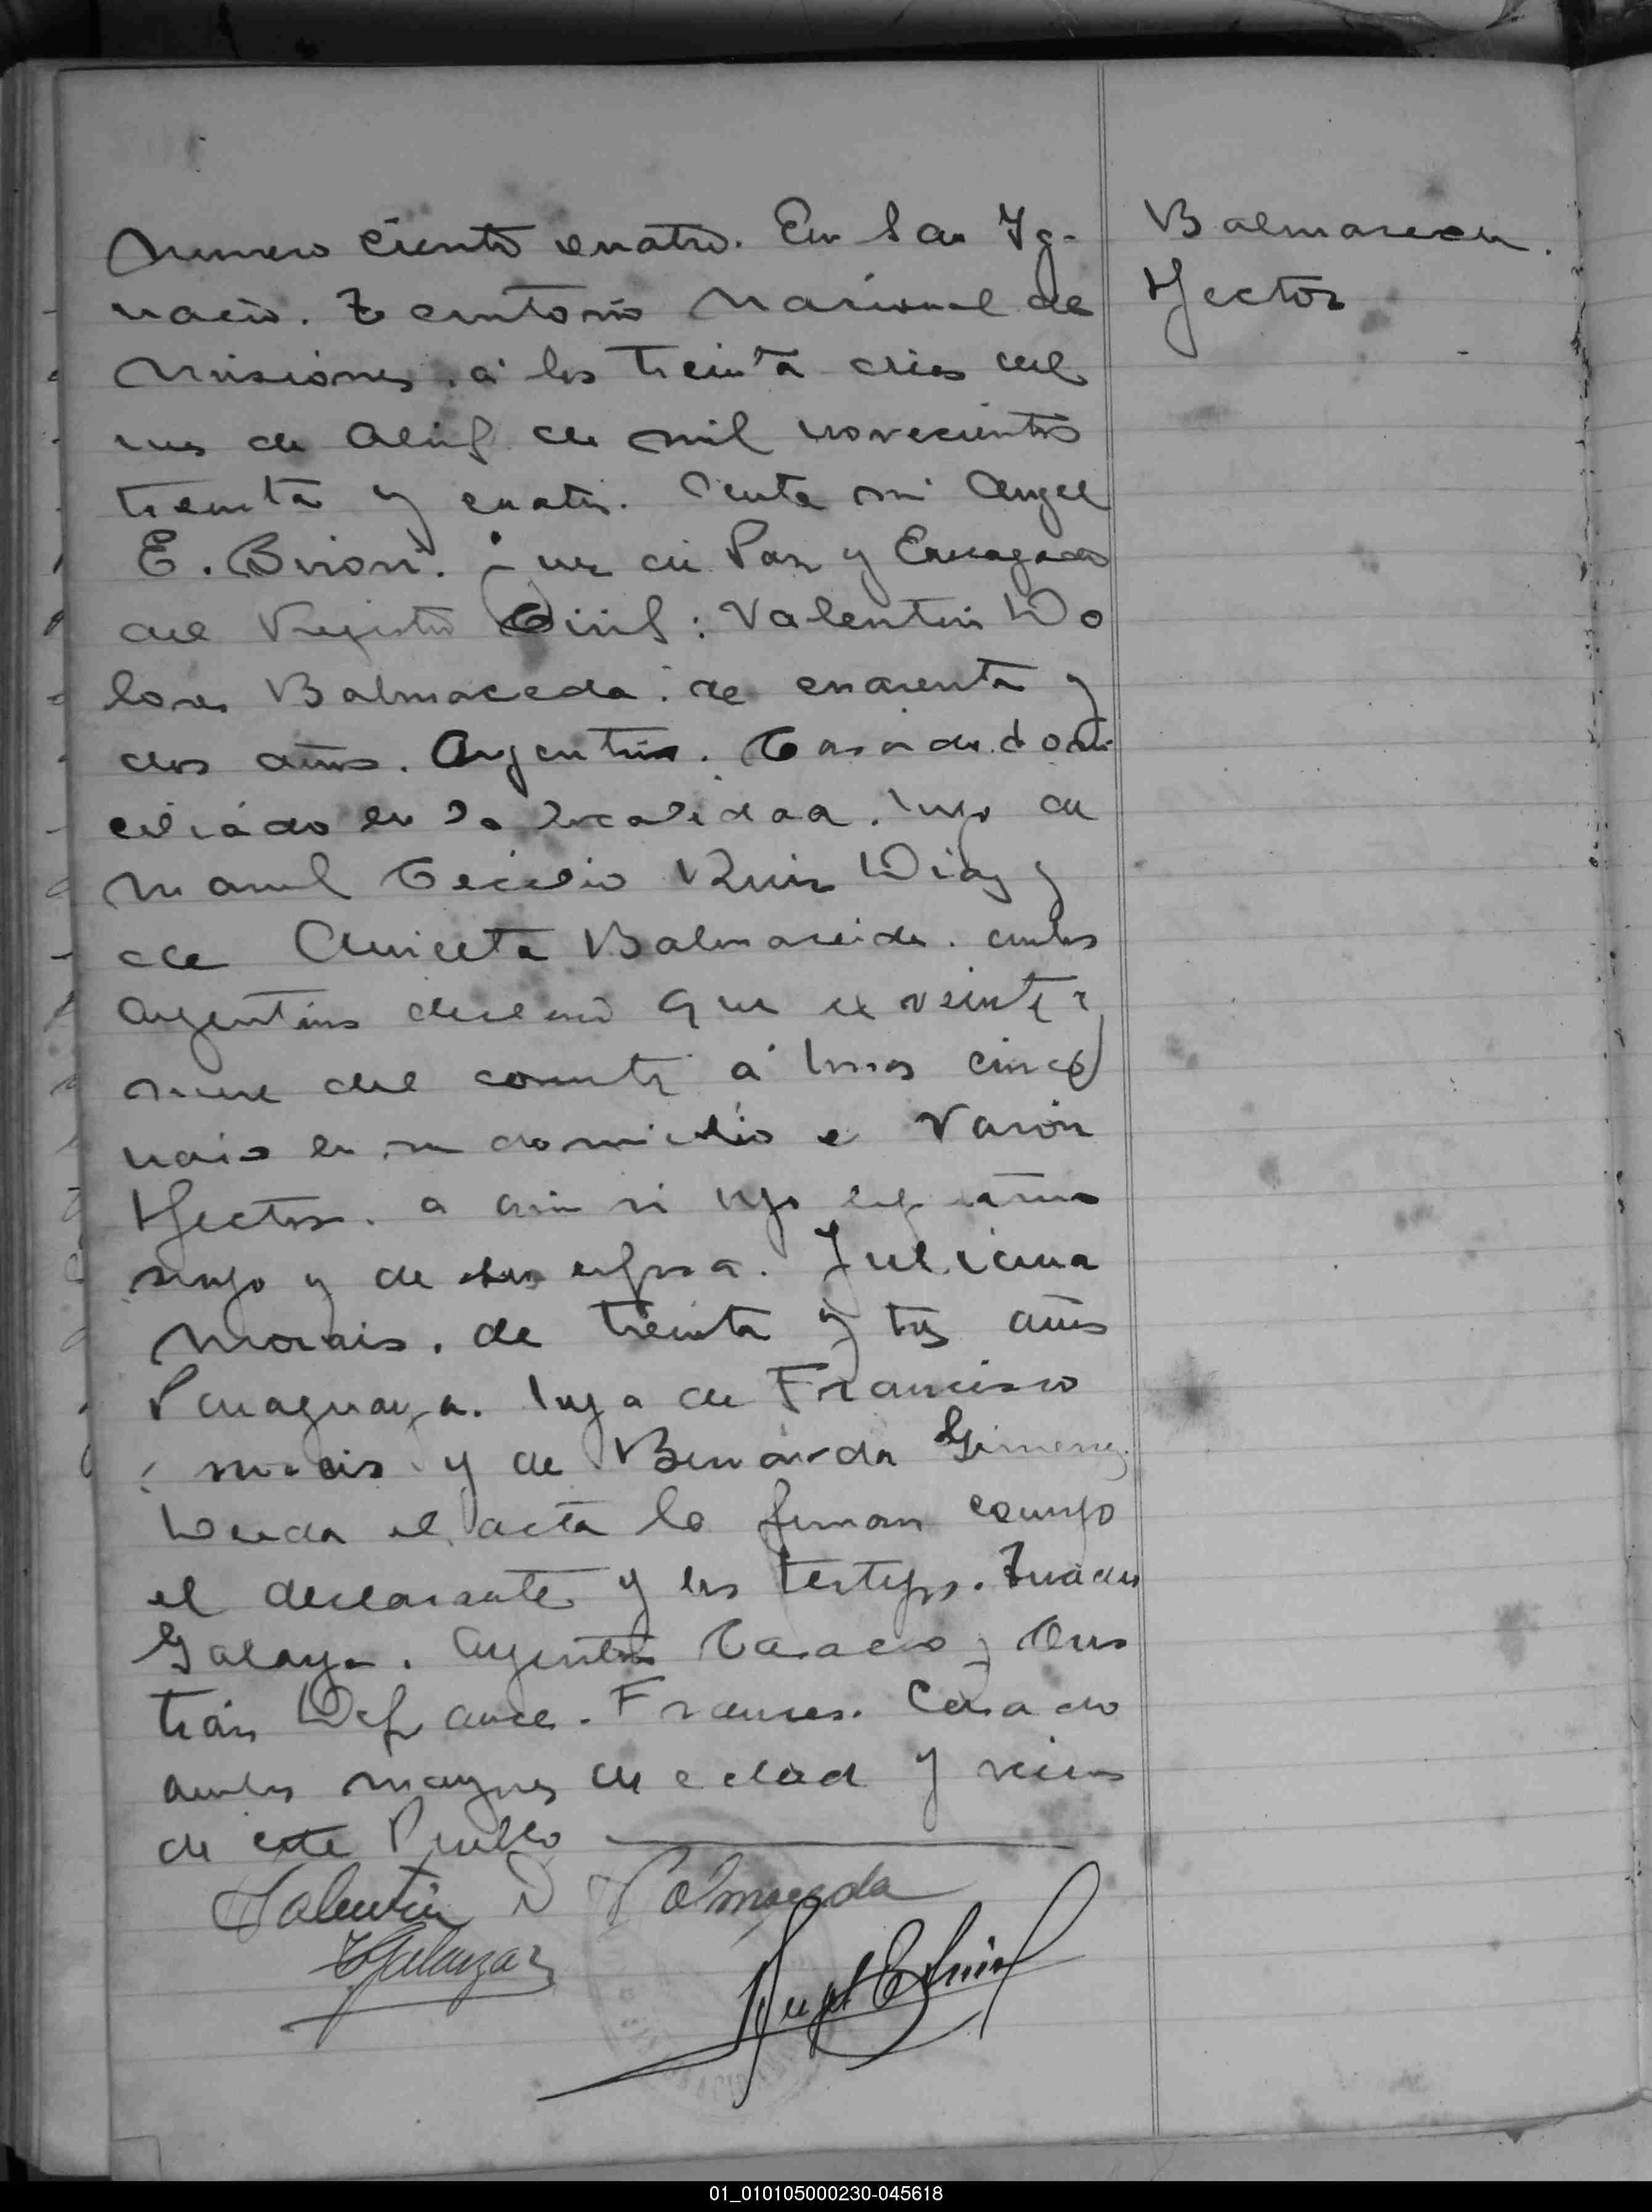 Numero ciento cuatro. En San Ig-
nacio. Territorio Nacional de
Misiones. á los treinta dias del
mes de Abril de mil novecientos
treinta y cuatro. Ante mi Angel
E. Juez de Paz y Encargado
del Registro Civil: Valentin Do
lores Balmaceda. de cuarenta y
dos años. Argentino. Casado. domi
ciliado en la localidad. hijo de
Manuel Cecilio Ruiz Diaz y
de Aniceta Balmaceda. ambos
Argentinos declaró que el veinte
nueve del corriente á horas cinco
nació en su domicilio el Varón
Hector. a quien vi hijo legitimo
suyo y de su esposa. Juliana
Morais. de treinta y tres años
Paraguaya. hija de Francisco
Morais y de Bernarda Gimenez.
Leida el acta la firman conmigo
el declarante y los testigos.
Galarza. Argentino Casado y Cris
tián Defrance. Frances. Casado
ambos mayores de edad y vecinos
de este Pueblo
Valentin D Balmaceda
Galarza
Angel E
Balmaceda.
Hector
01_010105000230-045618